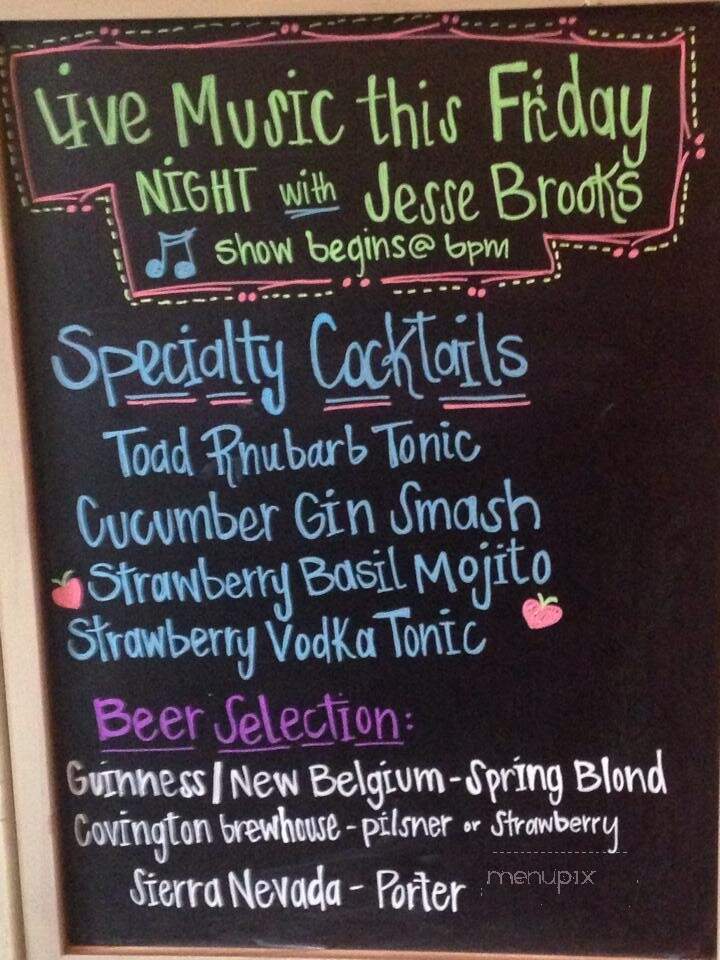 Live Music this Friday
NIGHT with Jesse Brooks
show begins@ 6pm
Specialty Cocktails
Toad Rhubarb Tonic
Cucumber Gin Smash
Strawberry Basil Mojito
Strawberry Vodka Tonic
Beer Selection:
Guinness / New Belgium - Spring Blond
Covington brewhouse - pilsner or Strawberry
Sierra Nevada - Porter
menupix